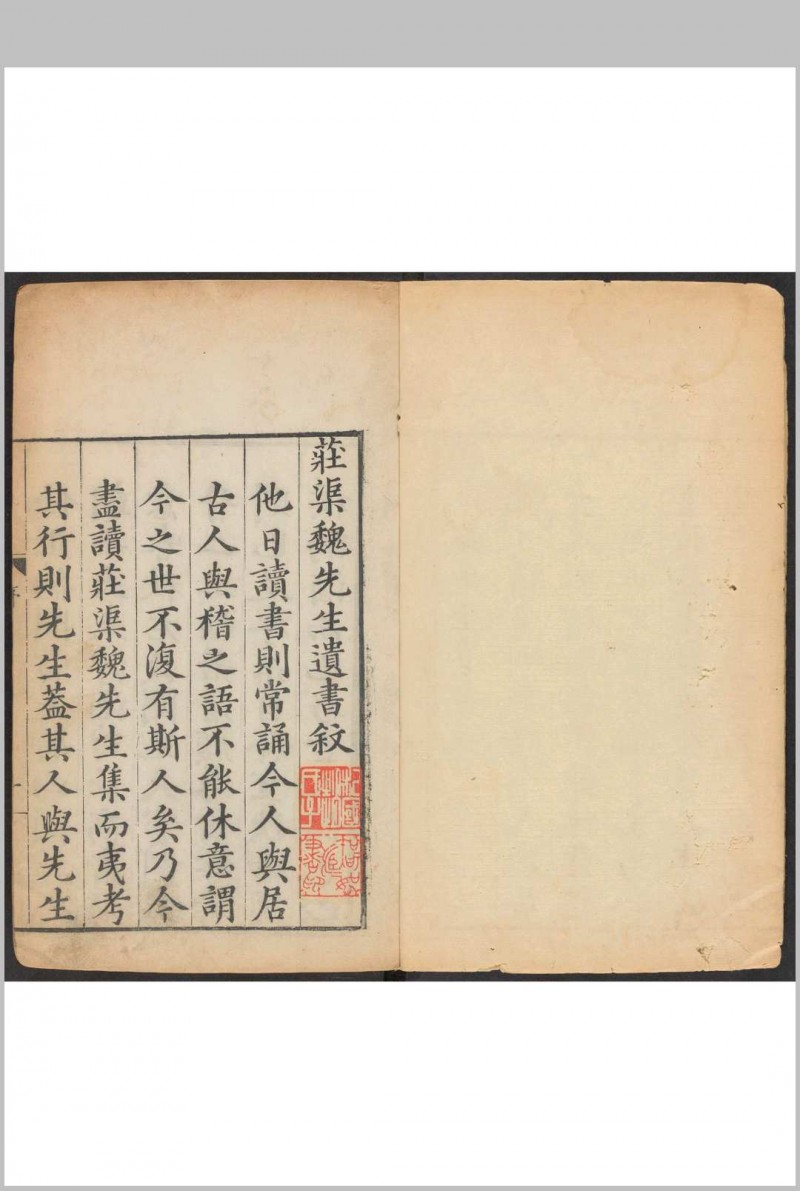 莊渠魏先生遺書敘
他日讀書則常誦今人與居
古人與稽之語不能休意謂
今之世不復有斯人矣乃今
盡讀莊渠魏先生集而夷考
其行則先生葢其人與先生